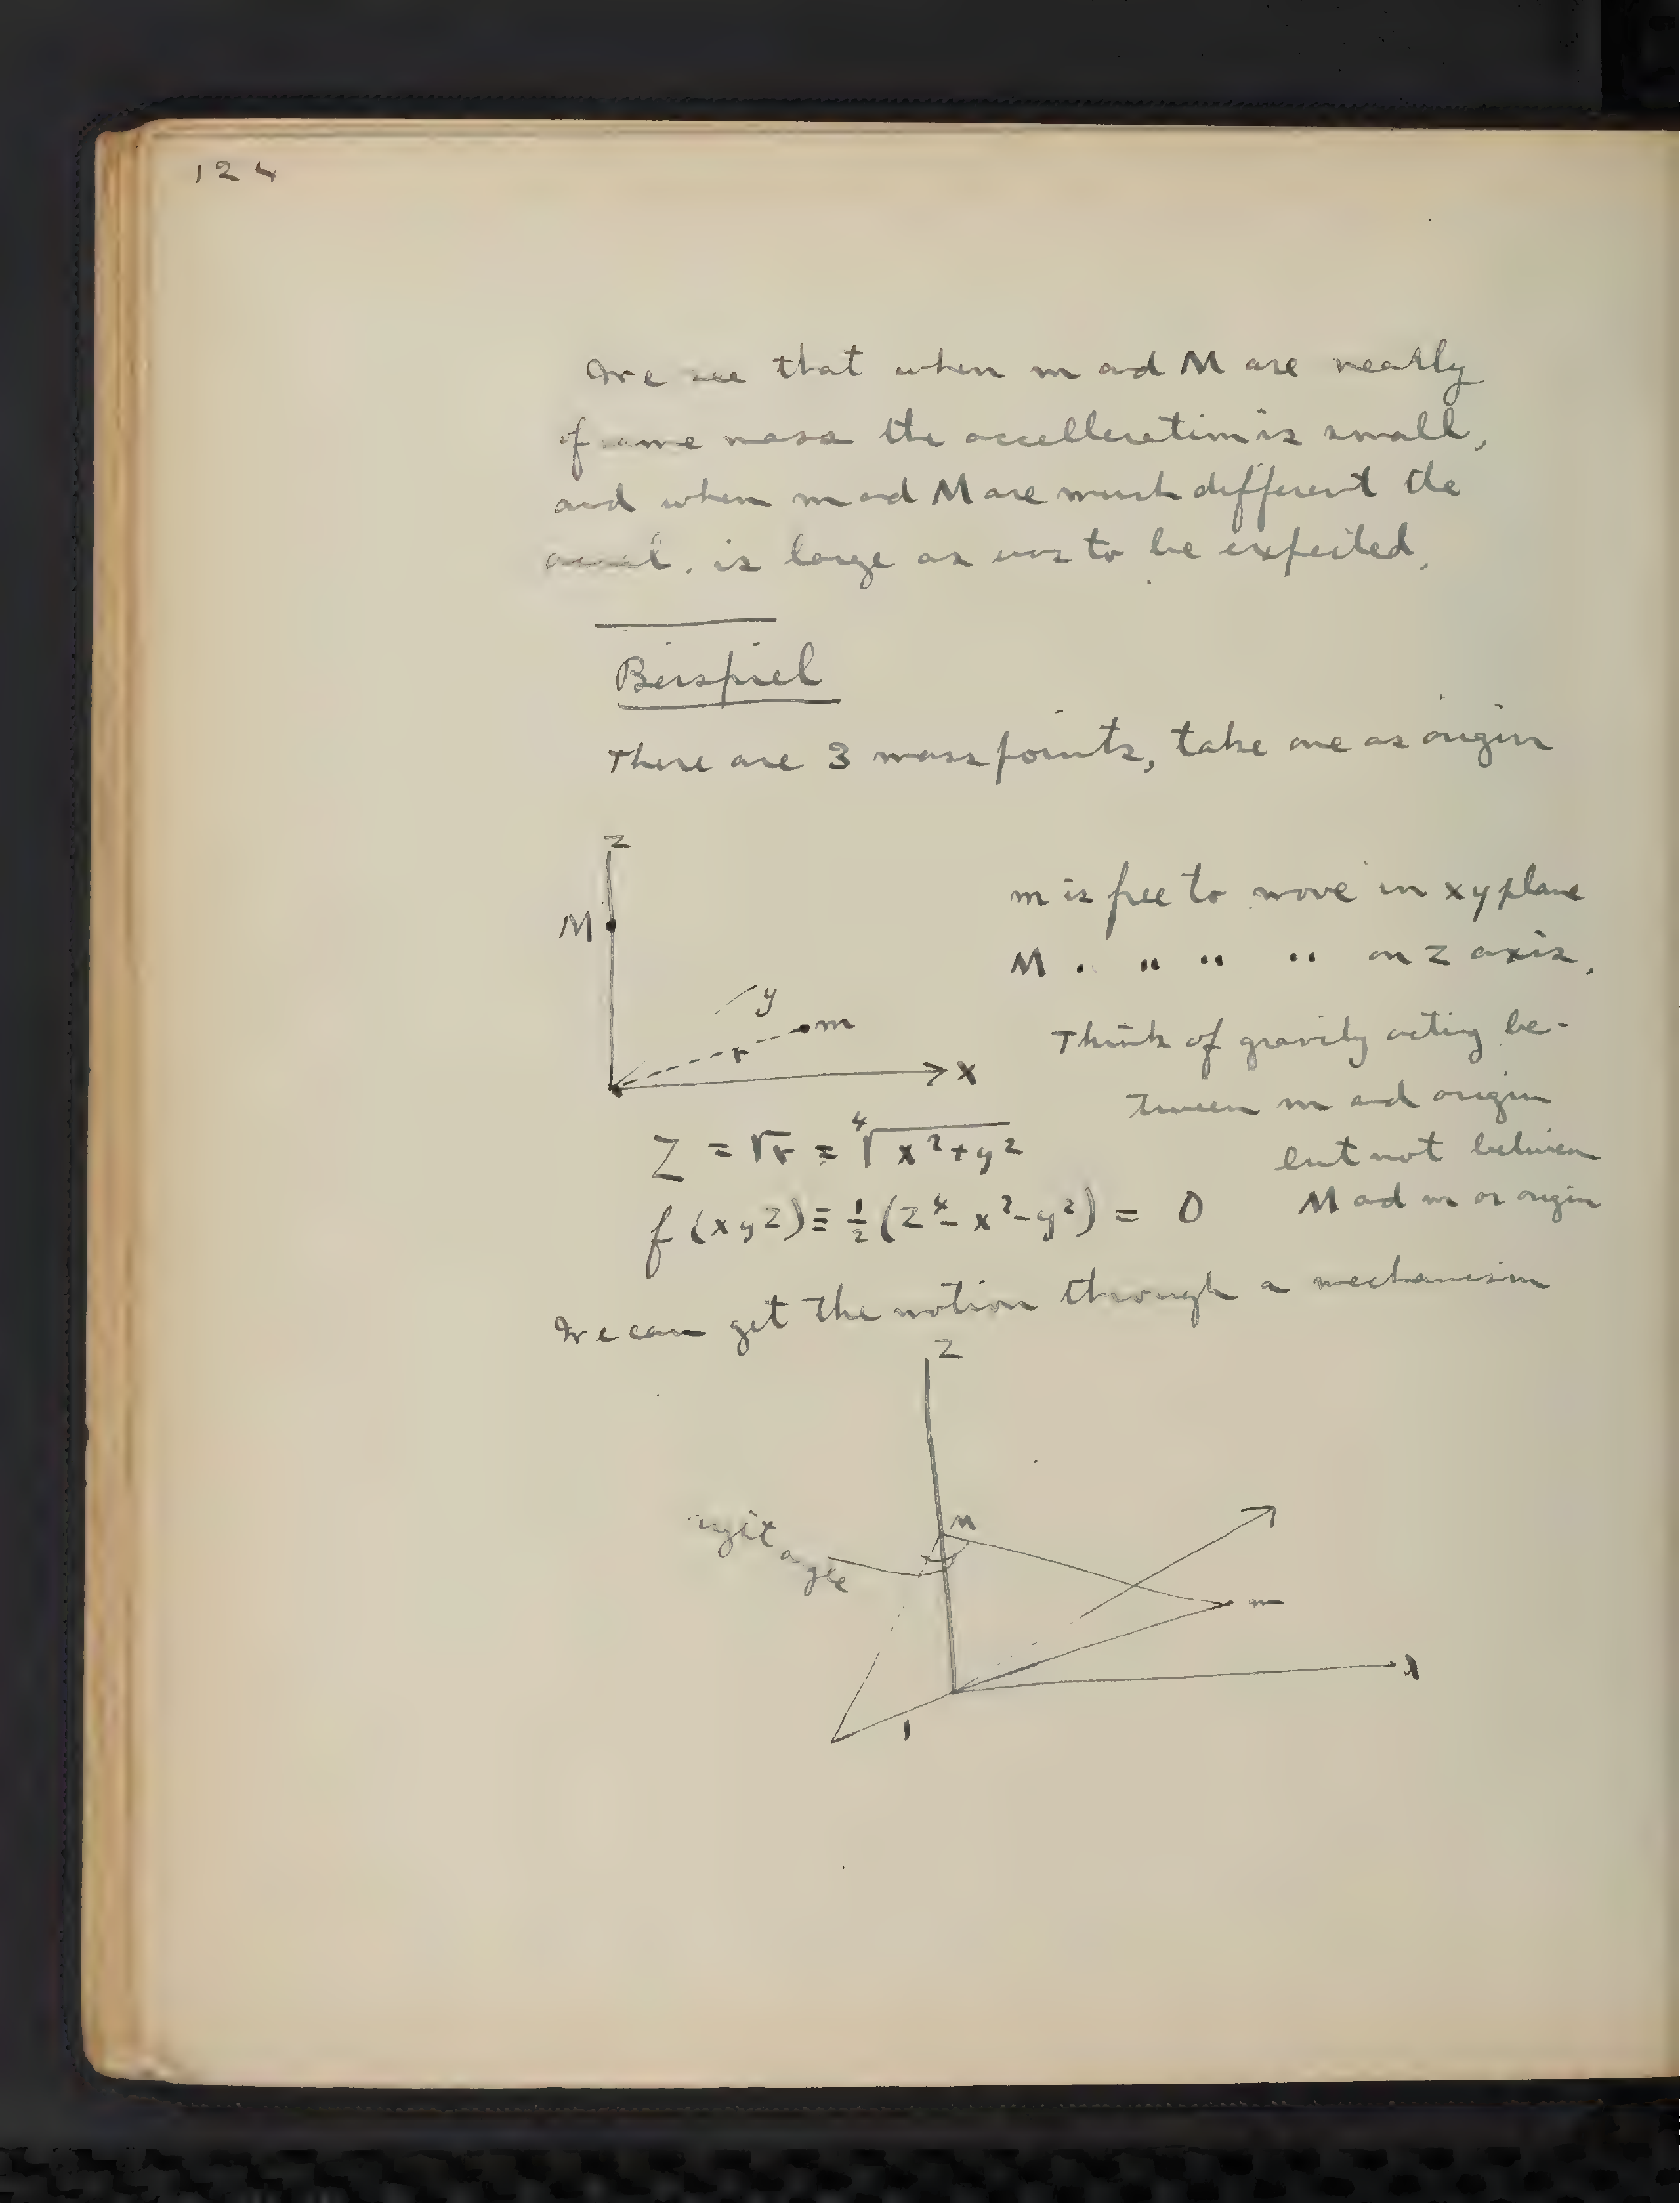 124
We see that when m and M are nearly
of same mass the accelleration is small,
and when m and M are much different the
accel. is large as was to be expected.
Beispiel
There are 3 mass points, take one as origin
z
M
y
m
r
x
m is free to move in xy plane
M " " " " on z axis.
Think of gravity acting be-
tween m and origin
but not between
M and m or origin
Z = √r = ∜(x²+y²)
f(xyz) ≡ ½(z⁴-x²-y²) = 0
We can get the motion through a mechanism
z
M
right
angle
m
x
1